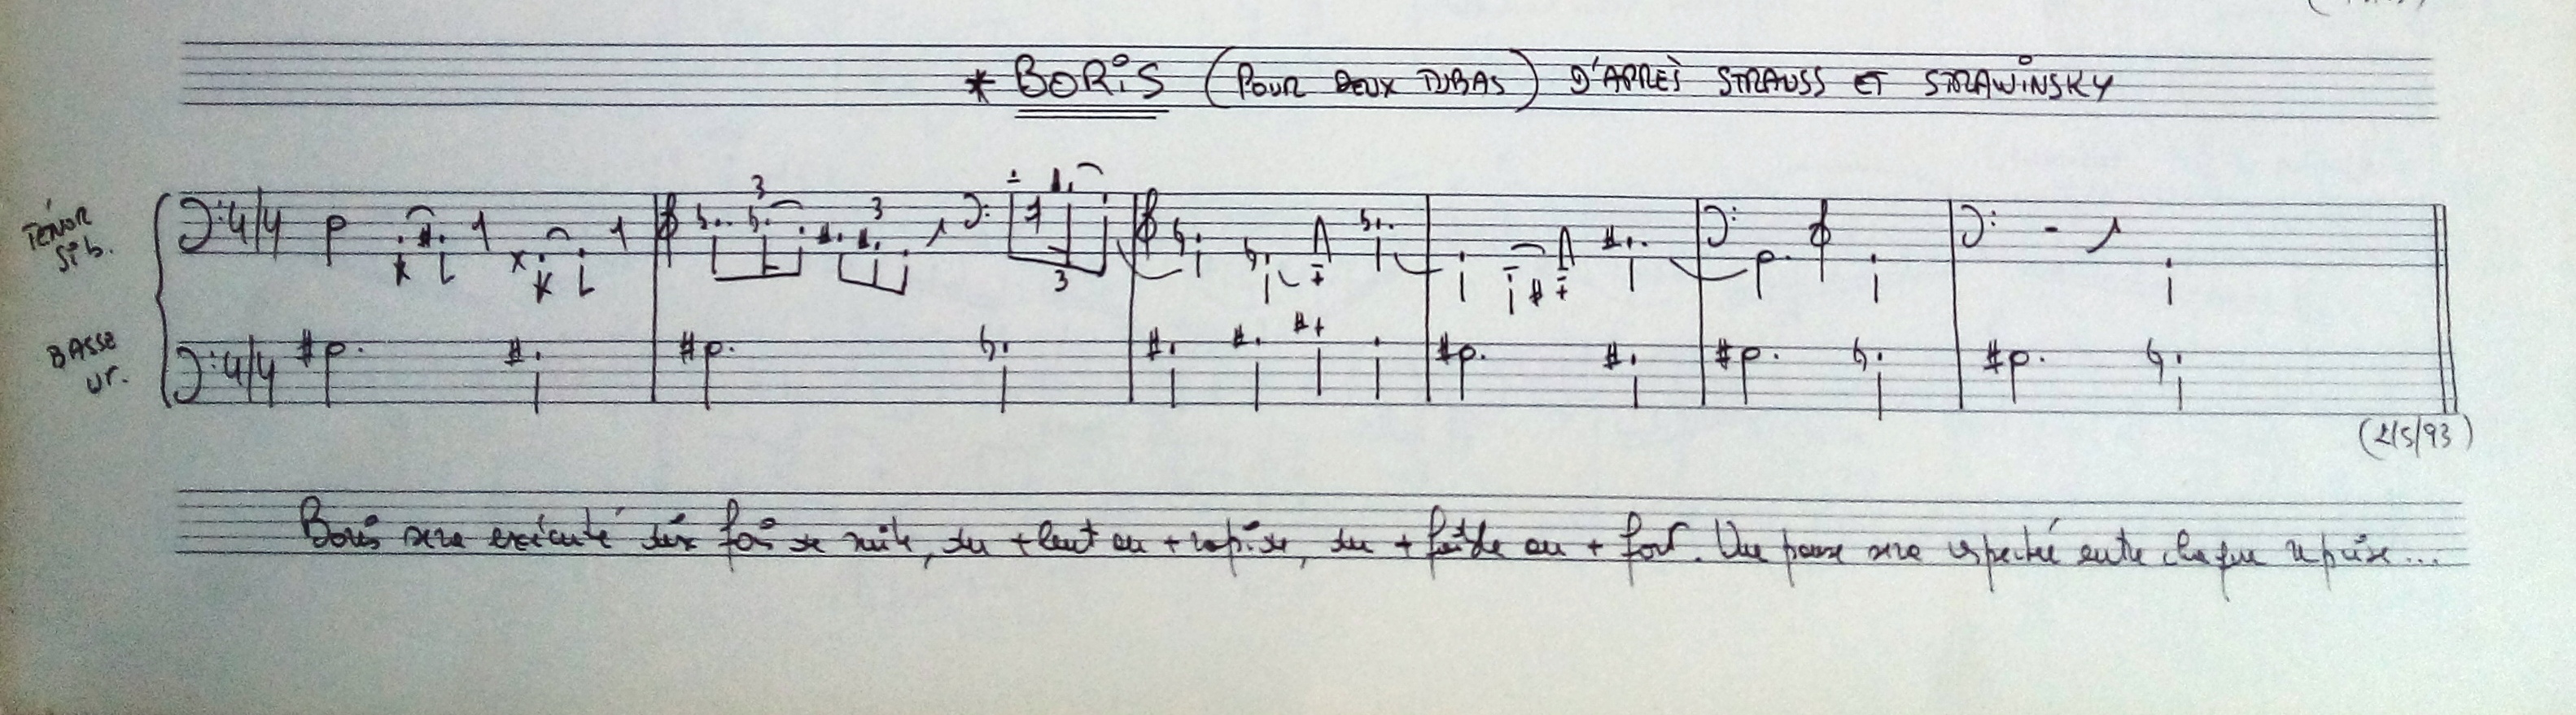 * BORiS (POUR DEUX TUBAS) D'APRÈS STRAUSS ET STRAWiNSKY
TÉNOR
Sib.
4/4
3
3
3
BASSE
UT.
4/4
(2/5/93)
Boris sera exécuté six fois de suite, du + lent au + rapide, du + faible au + fort. Une pause sera respectée entre chaque reprise...